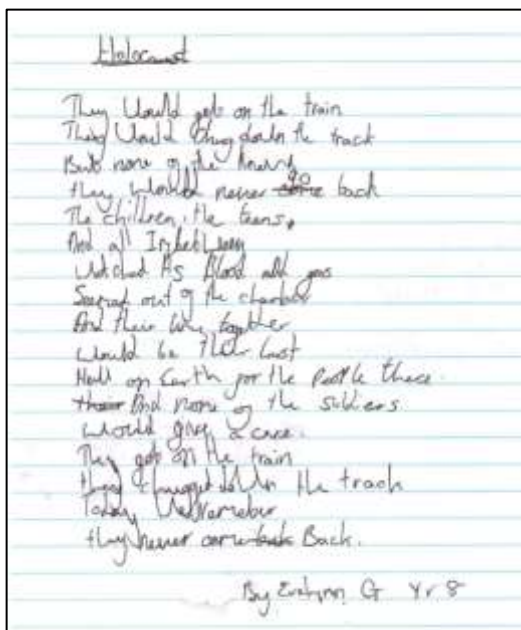 Holocaust
They Would get on the train
They Would chug down the track
But none of the knew
they would never go back
The children, the teens,
And all Inbetween
Watched As Blood and gas
Seeped out of the chamber
And their time together
Would be their last
Hell on Earth for the People there.
And none of the soldiers
would give a care.
They got on the train
they chugged down the track
Today We Remember
they never came Back.
By G Yr 8